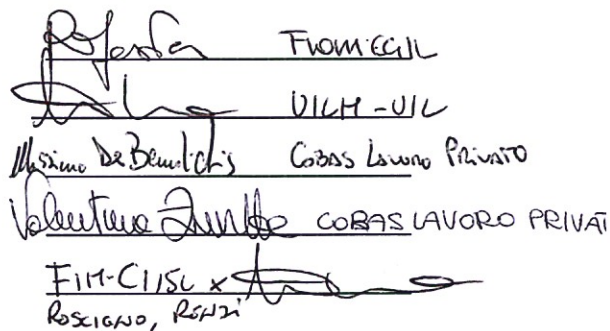 FIOM CGIL
UILM - UIL
Massimo De Benedictis COBAS LAVORO PRIVATO
Valentina COBAS LAVORO PRIVAT
FIM-CISL x
ROSCIGNO, RENZI